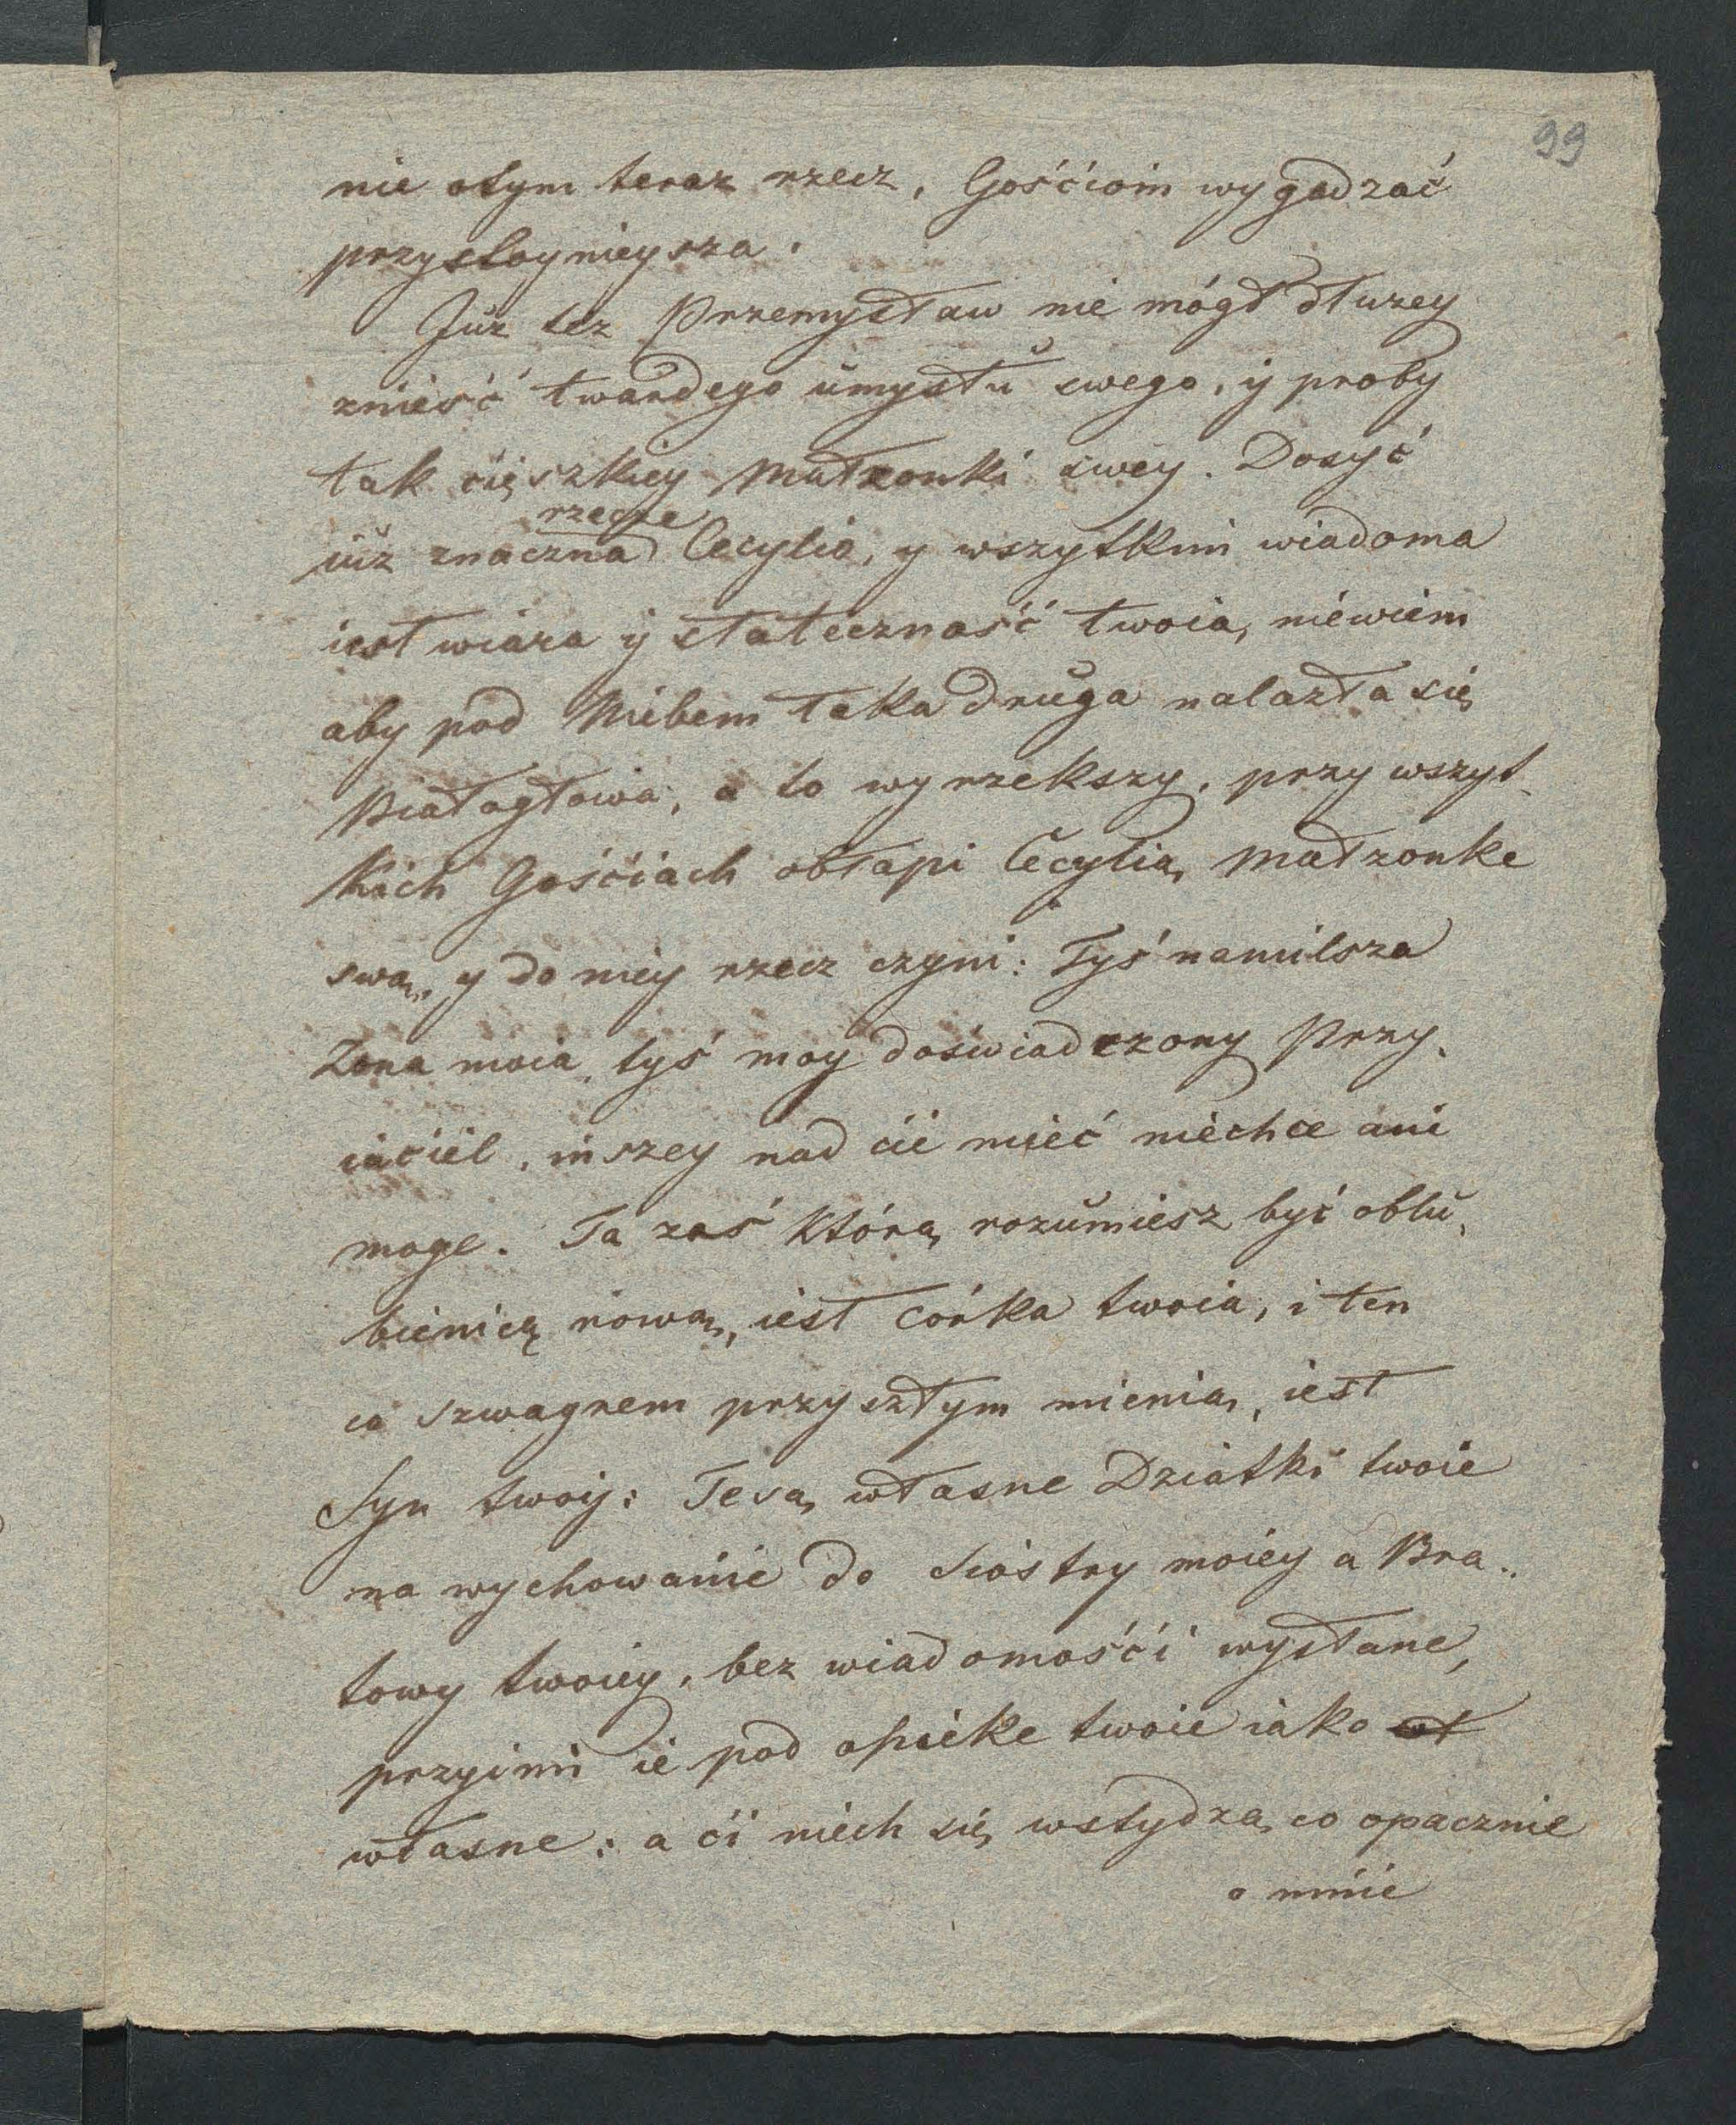 99
nie otym teraz rzecz, Gośćiom wygadzać
przystoynieysza.
Juz tez Przemysław nie mógł dłuzey
znieść twardego umysłu swego, y proby
tak cięszkiey Małzonki swey. Dosyć
rzecze
iuz znaczna Cecylia, y wszytkim wiadoma
iest wiara y stateczność twoia, niewiem
aby pod Niebem taka druga nalazła się
Białogłowa, a to wyrzekszy, przy wszyt-
kich Gośćiach obłapi Cecylią Małzonke
swą, y do niey rzecz czyni: Tyś namilsza
Zona moia, tyś moy doświadczony Przy-
iaciel, inszey nad cie mieć niechce ani
moge. Ta zaś którą rozumiesz być oblu-
bienicą nową, iest córka twoia, i ten
co Szwagrem przyszłym mienią, iest
Syn twoy: Te są własne Dziatki twoie
na wychowanie do Siostry moiey a Bra-
towy twoiey, bez wiadomośći wysłane,
przyimi ie pod opieke twoie iako wł
własne: a ći niech się wstydzą co opacznie
o mnie